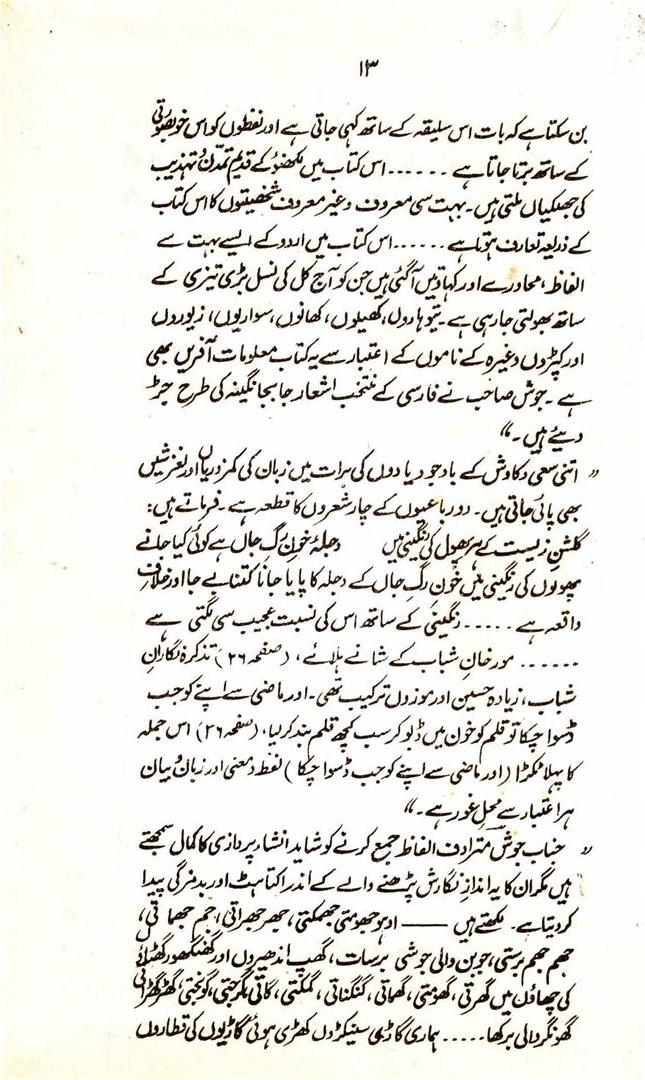 ۱۳
بن سکتا ہے کہ بات اس سلیقہ کے ساتھ کہی جاتی ہے اور لفظوں کو اس خوبصورتی
کے ساتھ برتا جاتا ہے ...... اس کتاب میں لکھنؤ کے قدیم تمدّن و تہذیب
کی جھلکیاں ملتی ہیں۔ بہت سی معروف و غیر معروف شخصیتوں کا اس کتاب
کے ذریعہ تعارف ہوتا ہے ...... اس کتاب میں اردو کے ایسے بہت سے
الفاظ، محاورے اور کہاوتیں آگئی ہیں جن کو آج کل کی نسل بڑی تیزی کے
ساتھ بھولتی جا رہی ہے۔ تیوہاروں، کھیلوں، کھانوں، سواریوں، زیوروں
اور کپڑوں وغیرہ کے ناموں کے اعتبار سے یہ کتاب معلومات آفریں بھی
ہے۔ جوش صاحب نے فارسی کے منتخب اشعار جابجا نگینہ کی طرح جڑ
دیئے ہیں۔“
”اتنی سعی و کاوش کے باوجود یادوں کی برات میں زبان کی کمزوریاں اور لغزشیں
بھی پائی جاتی ہیں۔ دو رباعیوں کے چار شعروں کا قطعہ ہے۔ فرماتے ہیں:
گلشنِ زیست کے ہر پھول کی رنگینی میں دجلۂ خونِ رگِ جاں ہے کوئی کیا جانے
پھولوں کی رنگینی میں خونِ رگِ جاں کے دجلہ کا پایا جانا کتنا بے جا اور خلافِ
واقعہ ہے ..... رنگینی کے ساتھ اس کی نسبت عجیب سی لگتی ہے
...... مورخانِ شباب کے شانے ہلائے، (صفحہ ۲۶) تذکرہ نگارانِ
شباب، زیادہ حسین اور موزوں ترکیب تھی۔ اور ماضی سے اپنے کو جب
ڈسوا چکا تو قلم کو خون میں ڈبو کر سب کچھ قلم بند کر لیا، (صفحہ ۲۶) اس جملہ
کا پہلا ٹکڑا (اور ماضی سے اپنے کو جب ڈسوا چکا) لفظ و معنی اور زبان و بیان
ہر اعتبار سے محلِ غور ہے۔“
”جناب جوش مترادف الفاظ جمع کرنے کو شاید انشاء پردازی کا کمال سمجھتے
ہیں مگر ان کا یہ اندازِ نگارش پڑھنے والے کے اندر اکتاہٹ اور بدمزگی پیدا
کر دیتا ہے۔ لکھتے ہیں —— او ہو جھومتی جھمکتی، جھرجھراتی، جم جھماتی،
جھم جھم برستی، جوبن والی جوشی برسات، گھپ اندھیروں اور گھنگھور گھٹاؤں
کی چھاؤں میں گھرتی، گھومتی، گھماتی، گنگناتی، گمکتی، گاتی، گرجتی، گونجتی، گھڑگھڑاتی
گھونگر والی برکھا ..... ہماری گاڑی سینکڑوں کھڑی ہوئی گاڑیوں کی قطاروں